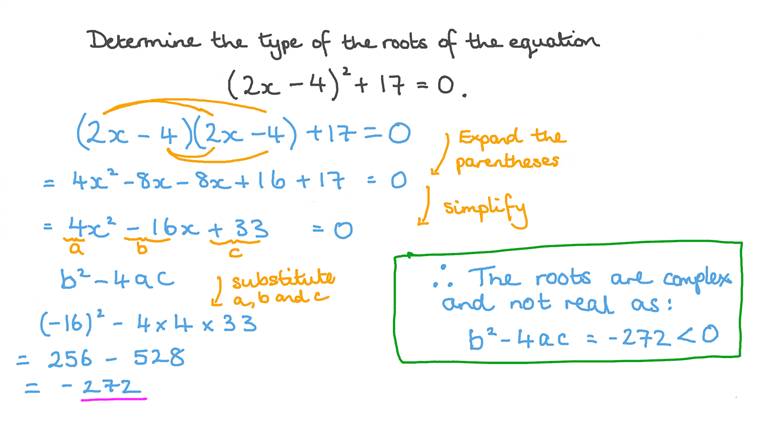 Determine the type of the roots of the equation
(2x - 4)² + 17 = 0.
(2x - 4)(2x - 4) + 17 = 0
Expand the
parentheses
= 4x² - 8x - 8x + 16 + 17 = 0
simplify
= 4x² - 16x + 33 = 0
a b c
b² - 4ac
substitute
a, b and c
(-16)² - 4 × 4 × 33
= 256 - 528
= - 272
∴ The roots are complex
and not real as:
b² - 4ac = -272 < 0